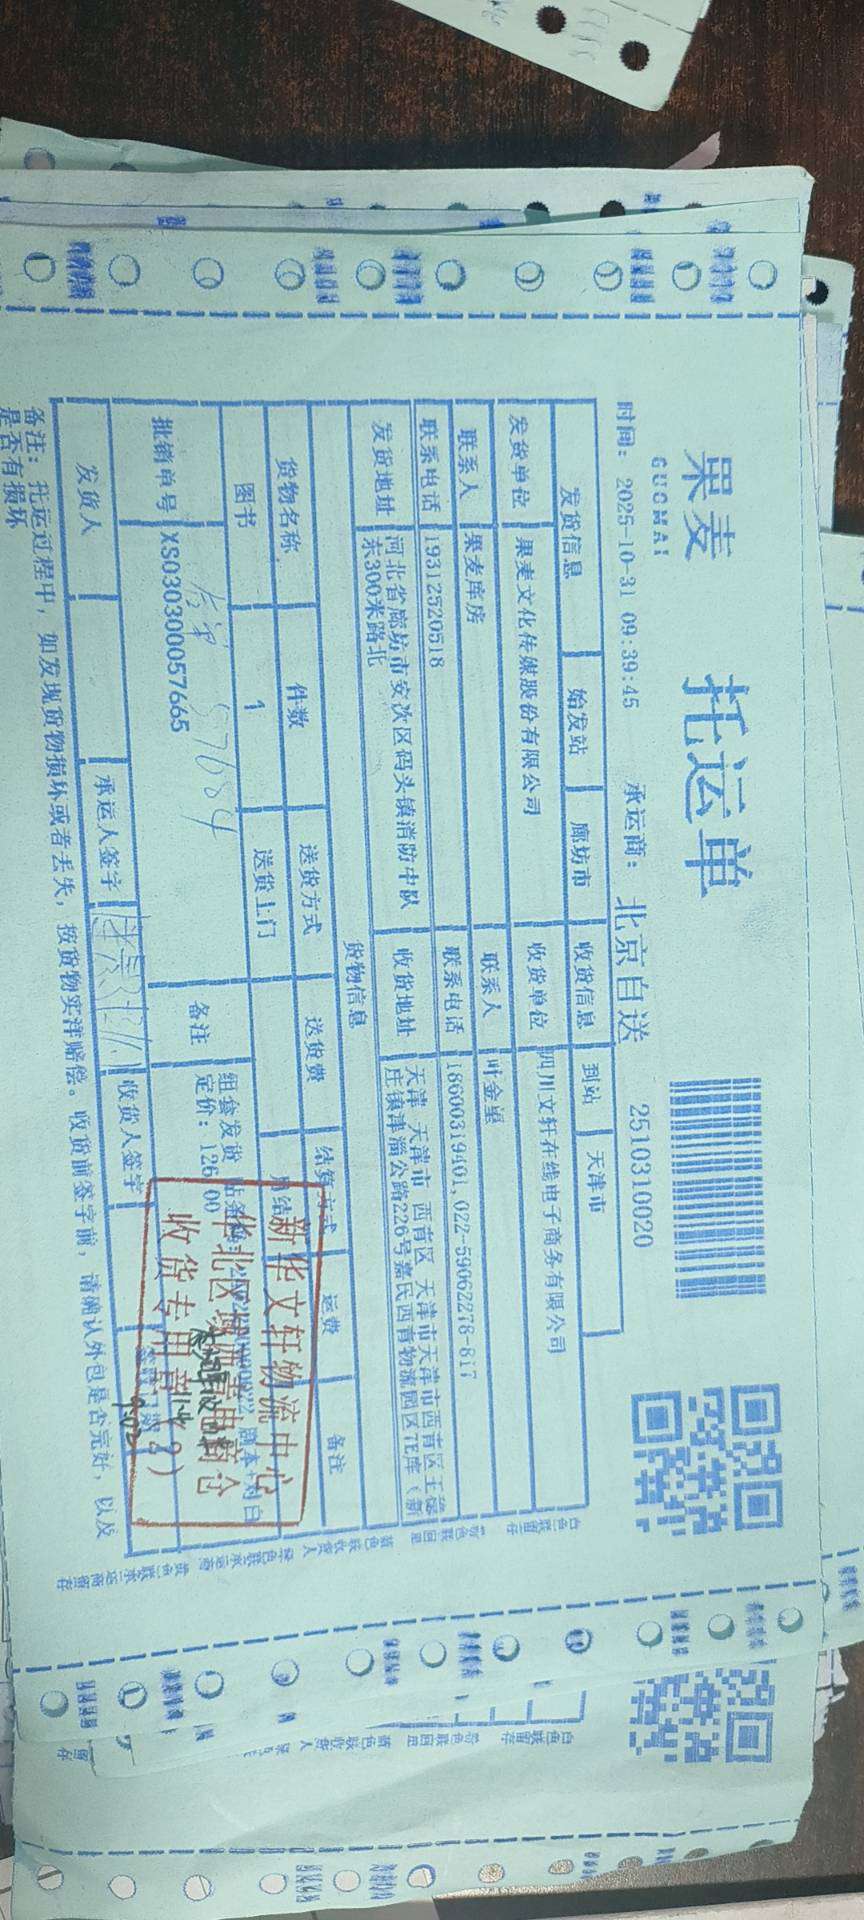 果麦 托运单
GUOMAI
时间: 2025-10-31 09:39:45 承运商: 北京自送 2510310020
发货信息 始发站 廊坊市 收货信息 到站 天津市
发货单位 果麦文化传媒股份有限公司 收货单位 四川文轩在线电子商务有限公司
联系人 果麦库房 联系人 叶金星
联系电话 19312520518 联系电话 18600319401,022-59062278-817
发货地址 河北省廊坊市安次区码头镇消防中队东300米路北 收货地址 天津 天津市 西青区 天津市天津市西青区王稳庄镇津淄公路226号嘉民西青物流园区7E库(新
货物信息
货物名称 件数 送货方式 送货费 结算方式 运费 备注
图书 1 送货上门 月结
批销单号 XS030300057665 备注 组套发货
57664
剧本+对白
定价: 126.00
新华文轩物流中心
华北区域西青电商仓
收货专用章
发货人 承运人签字 收货人签字
备注: 托运过程中, 如发现货物损坏或者丢失, 按货物实洋赔偿。收货前签字前, 请确认外包是否完好, 以及
是否有损坏
白色联留存 粉色联回单 蓝色联收货人 绿色联承运商 黄色联承运商留存